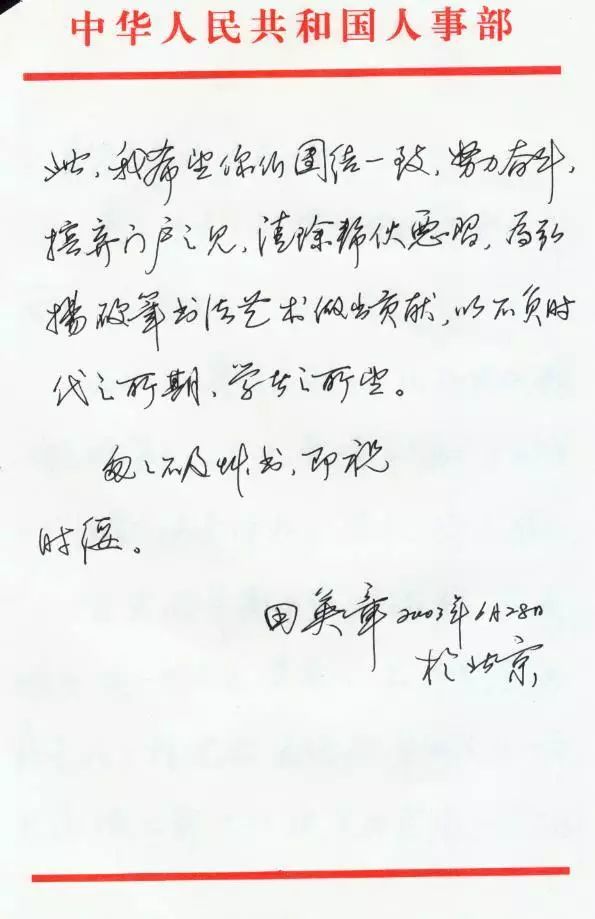 中华人民共和国人事部
此,我希望你们团结一致,努力奋斗,
摈弃门户之见,清除帮伙恶习,为弘
揚硬筆书法艺术做出贡献,以不负时
代之所期,学长之所望。
匆之不及草书,即祝
时绥。
田英章2003年6月28日
於北京